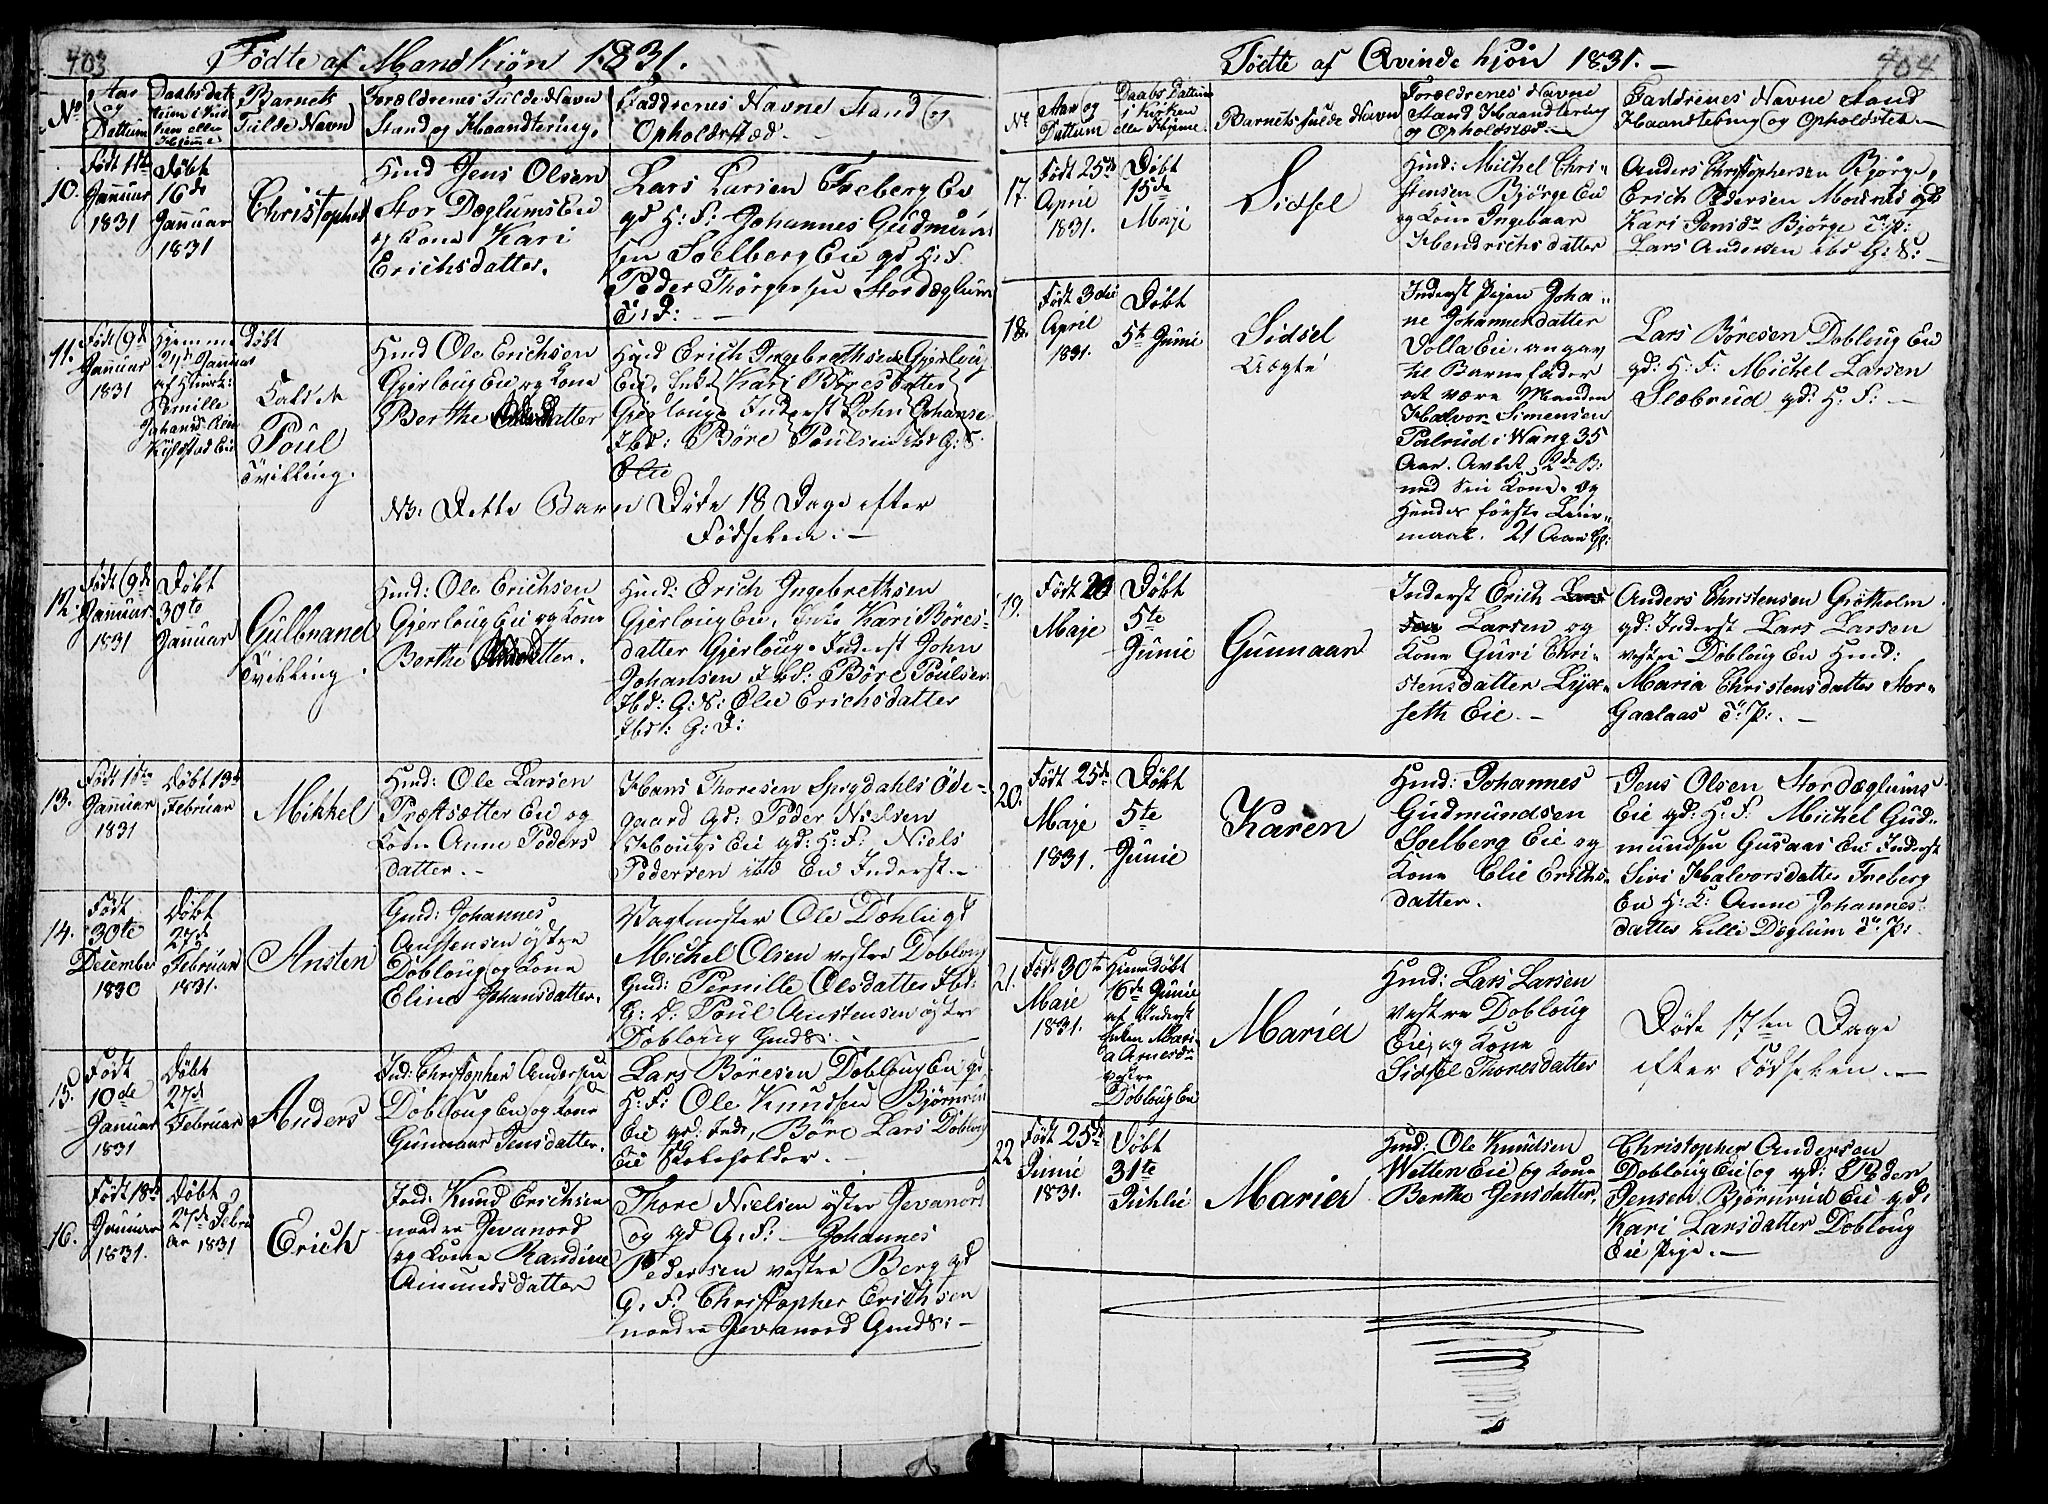 403
Fødte af Mandkiøn 1831.
No
Aar og Dattum
Daabsdat
Barnets Fulde Navn
Forældrenes Fulde Navn
Stand og Haandtering.
Faddrenes Navne Stand og
Opholdsstæd.
10.
Født 1ste
Januar
1831
Døbt
16de
Januar
1831
Christopher
Hmd Jens Olsen
Stor Dæglums Eie
og Kone Kari
Erichsdatter.
Lars Larsen Freberg Eie
gd H: F: Johannes Gudmund
sen Soelberg Eie gd H: F.
Peder Thorgersen Stordæglum
T: D:
11.
Født 9de
Januar
1831
Hjemme døbt
21de Januar
Pernille
Kaldet
Poul
Tvilling.
Hmd Ole Erichsen
Gjerloug Eie og Kone
Berthe
Hmd Erich Ingebrethsen Gjerloug
Eie. Kari Børesdatter
Gjerloug Inderst John Johanse
Ibd: Børe Poulsen ibd G: S.
NB: Dette Barn Døde 18 Dage efter
Fødselen. –
12.
Født 9de
Januar
1831
Døbt
30te
Januar
Gulbrand
Tvilling.
Hmd: Ole Erichsen
Gjerloug Eie og Kone
Berthe
Hmd: Erich Ingebrethsen
Gjerloug Eie, Kari Børes-
datter Gjerloug. Inderst John
Johansen Ibd: Børe Poulsen
Ibd: G: S: Elie Erichsdatter
Ibd: G: D:
13.
Født 1ste
Januar
1831
Døbt 13de
Februar
Mikkel
Hmd: Ole Larsen
Præstsætter Eie og
Kone Anne Peders
datter. –
Hans Thoresen Spigdahls Øde-
gaard gd: Peder Nielsen
Hougs Eie gd: H: F: Niels
Pedersen ibd Eie Inderst. –
14.
Født
30te
December
1830
Døbt
27de
Februar
1831.
Ansten
Gmd: Johannes
Austensen østre
Dobloug og Kone
Eline Johansdatter.
Vagtmester Ole Dæhli gd
Michel Olsen vestre Dobloug
Gmd: Pernille Olsdatter Ibd:
G: D: Poul Austensen østre
Dobloug GmdS: –
15.
Født
10de
Januar
1831
Døbt
27de
Februar
Anders
Ind: Christopher Andersen
Dobloug Eie og Kone
Gunnaur Jensdatter.
Lars Børesen Dobloug Eie gd
H: F: Ole Knudsen Bjørnrud
Eie gd: Ind, Børe Lars Dobloug
Eie Skoleholder. –
16.
Født 18de
Januar
1831.
Døbt
27de Febru
ar 1831
Erich
Ind: Knud Erichsen
nordre Jevanord
og Kone Randine
Amundsdatter
Thore Nielsen østre Jevanord
og gd G: F: – Johannes
Pedersen vestre Berg gd
G: F: Christopher Erichsen
nordre Jevanord GmdS: –
404
Fødte af Qvindekjøn 1831. –
No
Aar og
Dattum
Daabs Dattum
i Kirken
eller Hjeme.
Barnets fulde Navn
Forældrenes Navne
Stand Haandtering
og Opholdstæd –
Faddrenes Navne Stand
Haandtering og Opholdsted. –
17.
Født 25de
April
1831.
Døbt
15de
Maje
Sidsel
Hmd: Michel Chri-
stensen Bjørge Eie
og Kone Ingebaar
Hendrichsdatter
Anders Christophersen Bjørge,
Erich Pedersen gd
Kari Jensdr Bjørge T: P:
Lars Andersen ibd G: S: –
18.
Født 3die
April
1831.
Døbt
5te Junie
Sidsel
Uægte
Inderst Pigen Joha-
ne Johannesdatter
Dolla Eie. angav
til Barnefader
at være Manden
Halvor Simensen
i Wang 35
Aar. Avlet 2de B:
med sin Kone. og
Hendes første Leier-
maal. 21 Aar Gl:
Lars Børesen Dobloug Eie
gd: H: F: Michel Larsen
Slæbrud gd: H. F: –
19.
Født 20
Maje
Døbt
5te
Junie
Gunnaar
Inderst Erich
Larsen og
Kone Guri Chri-
stensdatter
seth Eie. –
Anders Christensen Grøtholm
gd: Inderst Lars Larsen
vestre Dobloug Eie Hmd:
Maria Christensdatter Stor-
Gaalaas T: P: –
20.
Født 25de
Maje
1831.
Døbt
5te
Junie
Karen
Hmd: Johannes
Gudmundsen
Soelberg Eie og
Kone Elie Erichs-
datter.
Jens Olsen Stordæglums
Eie gd: H: F: Michel Gud-
mundsen Gusaas Eie Inderst
Siri Halvorsdatter Freberg
Eie H: K: Anne Johannes-
datter Lille Dæglum T: P:
21.
Født 30te
Maje
1831.
Hjemdøbt
16de Junie
af Inderst
Enken Mari-
a Arnesdr
vestre
Dobloug Eie
Maria
Hmd: Lars Larsen
vestre Dobloug
Eie, og Kone
Sidsel Thoresdatter
Døde 17ten Dage
efter Fødselen. –
22
Født 25de
Junie
1831.
Døbt
31te
Juhlie
Maria
Hmd: Ole Knudsen
Wetten Eie og Kone
Berthe Jensdatter.
Christopher Andersen
Dobloug Eie og gd: Peder
Jensen Bjørnrud Eie gd:
Kari Larsdatter Dobloug
Eie Pige. –